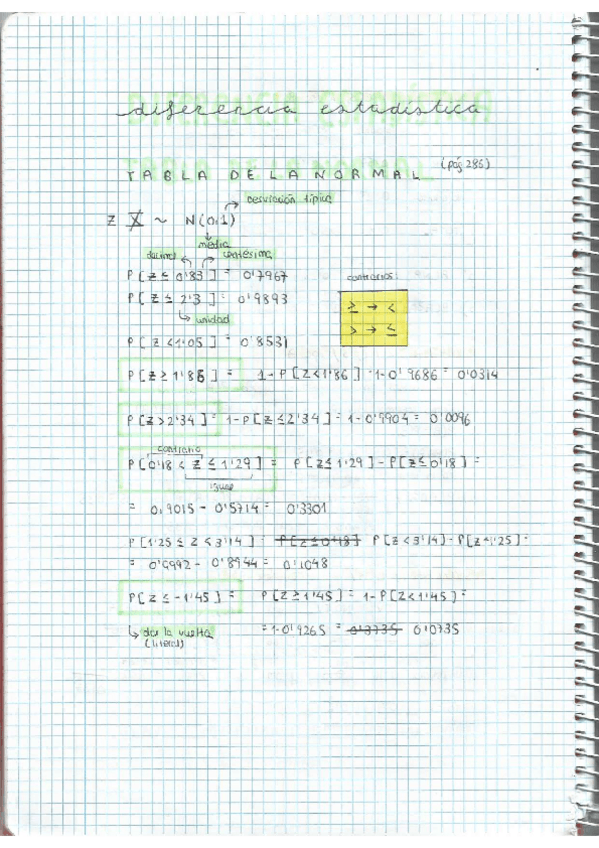 diferencia estadística
TABLA DE LA NORMAL (pág 286)
desviación típica
Z X ~ N(0,1)
media
decimal centésima
P[Z ≤ 0'83] = 0'7967
contrarios:
P[Z ≤ 2'3] = 0'9893
≥ → <
unidad
> → ≤
P[Z < 1'05] = 0'8531
P[Z ≥ 1'86] = 1-P[Z < 1'86] = 1-0'9686 = 0'0314
P[Z > 2'34] = 1-P[Z ≤ 2'34] = 1-0'9904 = 0'0096
contrario
P[0'18 < Z ≤ 1'29] = P[Z ≤ 1'29] - P[Z ≤ 0'18] =
igual
= 0,9015 - 0'5714 = 0'3301
P[1'25 ≤ Z < 3'14] = P[Z ≤ 0'18] P[Z < 3'14] - P[Z < 1'25] =
= 0'9992 - 0'8944 = 0'1048
P[Z ≤ -1'45] = P[Z ≥ 1'45] = 1-P[Z < 1'45] =
dar la vuelta = 1-0'9265 = 0'3735 0'0735
(literal)